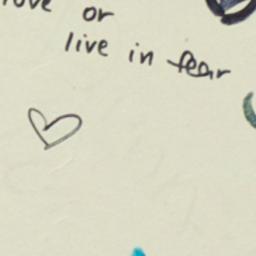 love or
live in fear